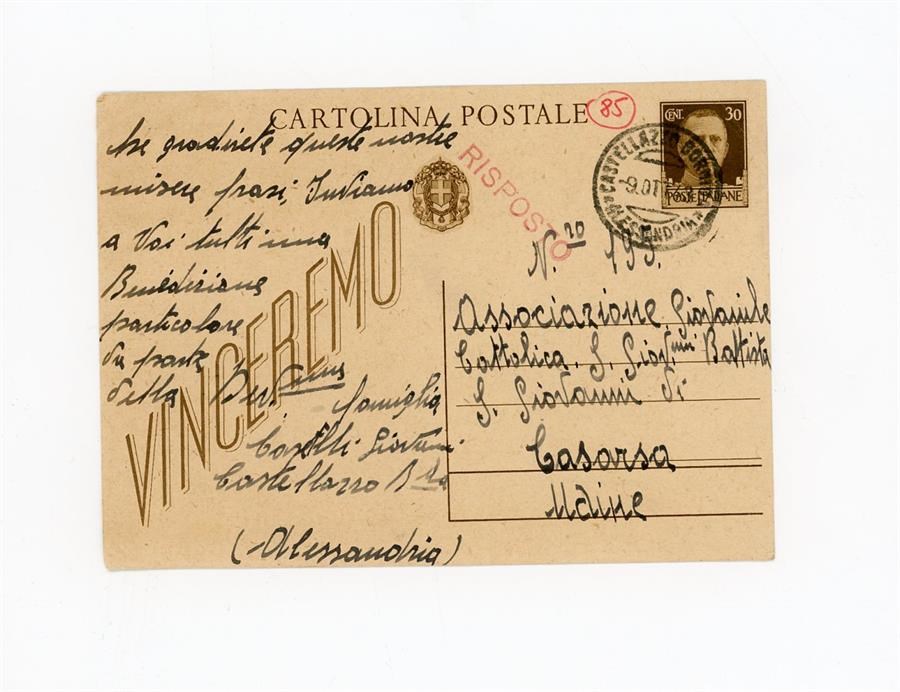 CARTOLINA POSTALE
85
CENT. 30
POSTE ITALIANE
CASTELLAZZO BORMIDA
ALESSANDRIA
RISPOSTO
VINCEREMO
gradirete queste nostre
misere frasi, Inviamo
a Voi tutti una
Benedizione
particolare
da parte
della
famiglia
Caselli Giovanni
Castellazzo Bda
(Alessandria)
N. 20 193.
Associazione Giovanile
Cattolica. S. Giov.nni Battista
S. Giovanni di
Casarsa
Udine